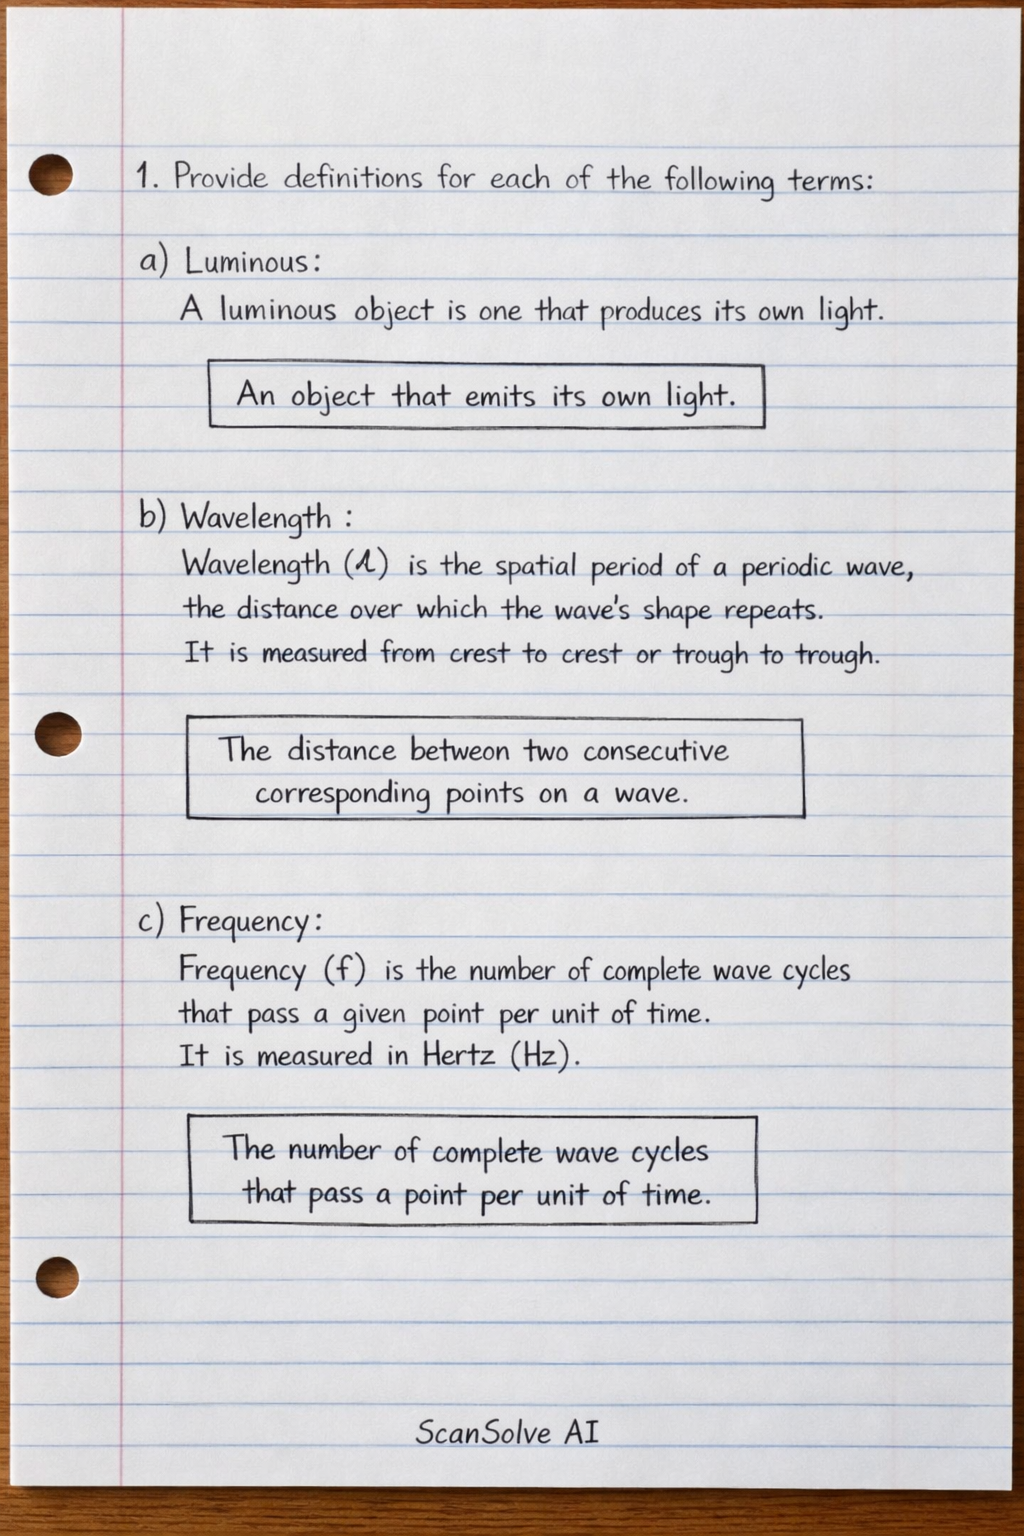 1. Provide definitions for each of the following terms:
a) Luminous:
A luminous object is one that produces its own light.
An object that emits its own light.
b) Wavelength :
Wavelength (λ) is the spatial period of a periodic wave,
the distance over which the wave's shape repeats.
It is measured from crest to crest or trough to trough.
The distance betweon two consecutive
corresponding points on a wave.
c) Frequency:
Frequency (f) is the number of complete wave cycles
that pass a given point per unit of time.
It is measured in Hertz (Hz).
The number of complete wave cycles
that pass a point per unit of time.
ScanSolve AI